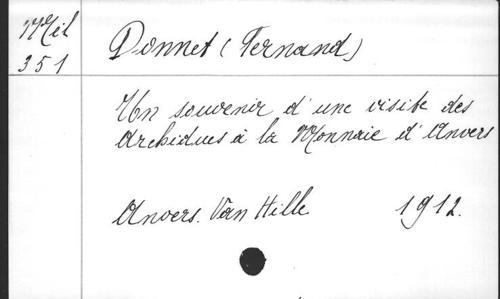 Mél
351
Donnet (Fernand)
Un souvenir d'une visite des
Archiducs à la Monnaie d'Anvers
Anvers. Van Hille 1912.